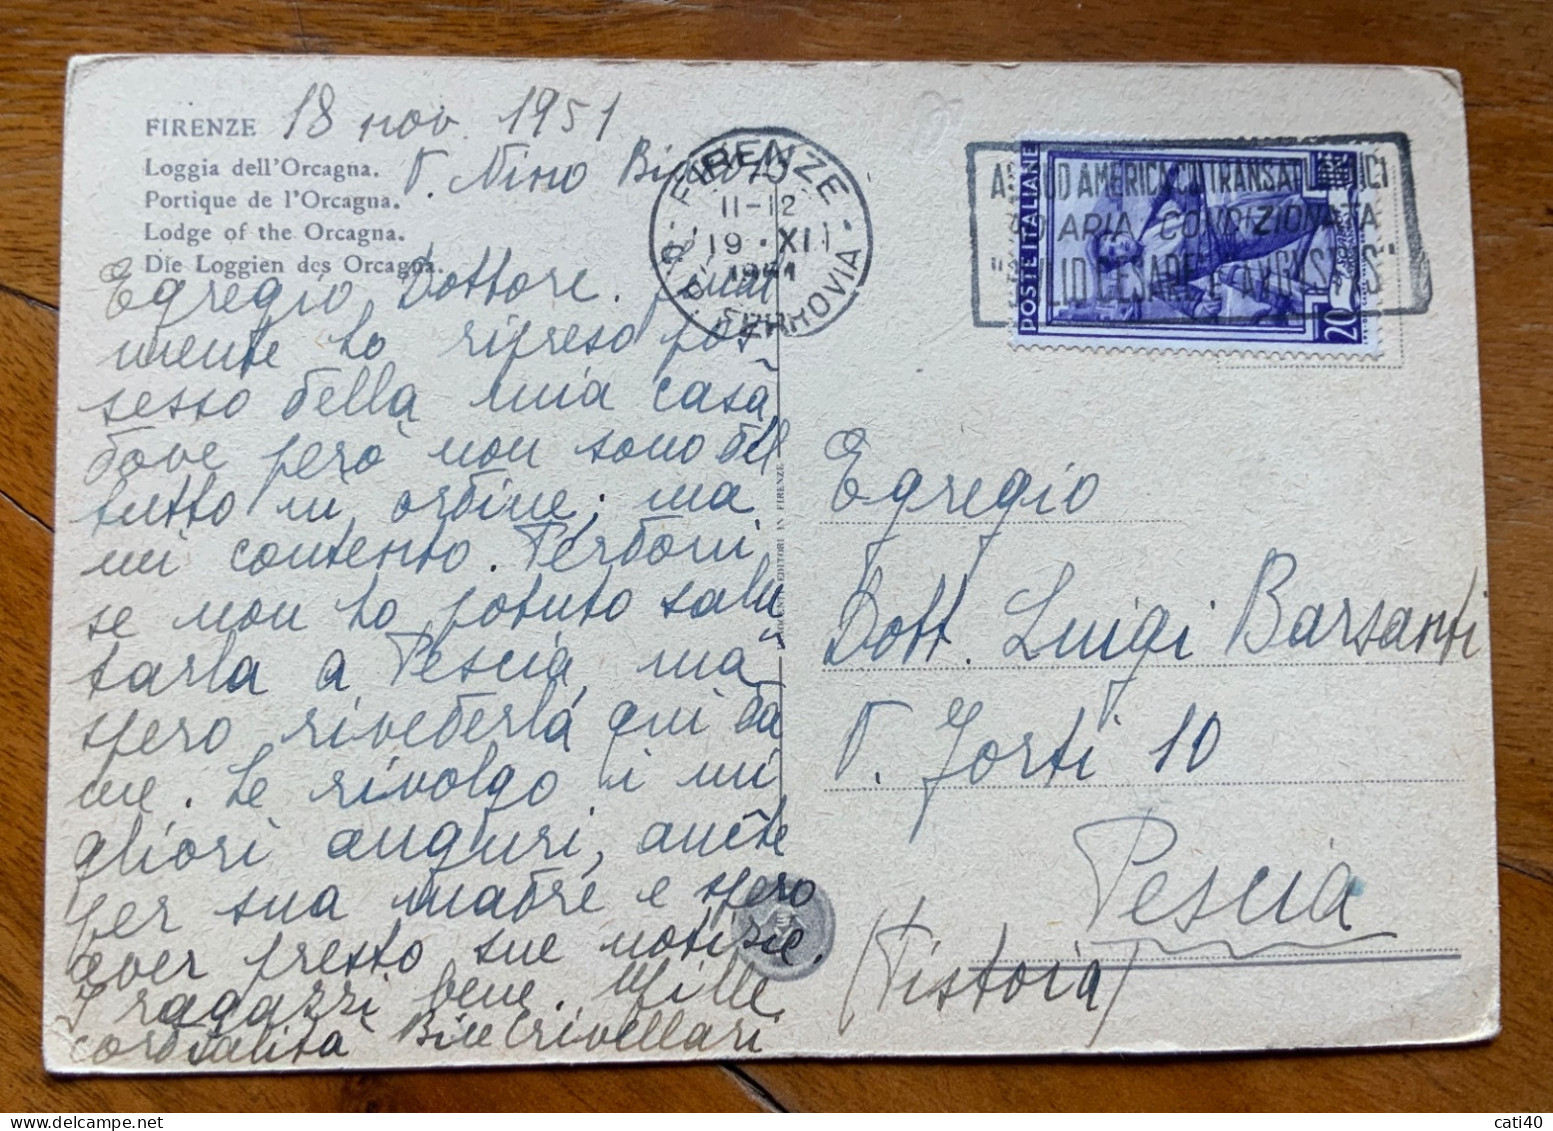 FIRENZE 18 nov. 1951
Loggia dell'Orcagna. V. Nino Bixio 13
Portique de l'Orcagna.
Lodge of the Orcagna.
Die Loggien des Orcagna.
Egregio Dottore. final
mente ho ripreso pos
sesso della mia casa,
dove però non sono del
tutto in ordine; ma
mi contento. Perdoni
se non ho potuto salu
tarla a Pescia, ma
spero rivederla qui da
me. Le rivolgo i mi
gliori auguri, anche
per sua madre e spero
aver presto sue notizie.
I ragazzi bene. Mille
cordialità Bice Crivellari
EDITORI IN FIRENZE
FIRENZE
11-12
19 • XI
1951
FERROVIA
AMERICA CU TRANSATLANTICI
AD ARIA CONDIZIONATA
"GIULIO CESARE E AUGUSTUS"
POSTE ITALIANE
20
Egregio
Dott. Luigi Barsanti
V. Forti 10
Pescia
(Pistoia)
cati40